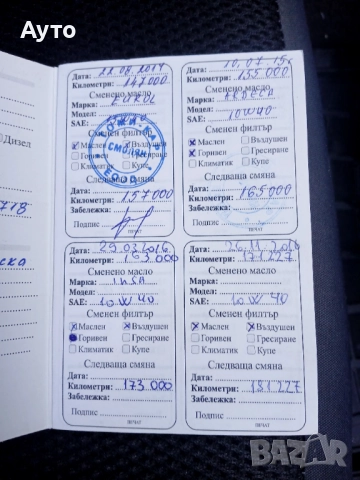 Ауто
Дизел
Дата: 22.08.2014
Километри: 147000
Сменено масло
Марка: EUROL
Модел:
SAE:
Сменен филтър
Маслен Въздушен
Горивен Гресиране
Климатик Купе
Следваща смяна
Дата:
Километри: 157000
Забележка:
Подпис
ПЕЧАТ
СМОЛЯН
Дата: 10.07.15г
Километри: 155000
Сменено масло
Марка: ARDECA
Модел:
SAE: 10W40
Сменен филтър
Маслен Въздушен
Горивен Гресиране
Климатик Купе
Следваща смяна
Дата:
Километри: 165000
Забележка:
Подпис
ПЕЧАТ
Дата: 29.03.2016
Километри: 163.000
Сменено масло
Марка: INSA
Модел:
SAE: 10W40
Сменен филтър
Маслен Въздушен
Горивен Гресиране
Климатик Купе
Следваща смяна
Дата:
Километри: 173.000
Забележка:
Подпис
ПЕЧАТ
Дата: 26.11.2016
Километри: 171.227
Сменено масло
Марка:
Модел:
SAE: 10W40
Сменен филтър
Маслен Въздушен
Горивен Гресиране
Климатик Купе
Следваща смяна
Дата:
Километри: 181.227
Забележка:
Подпис
ПЕЧАТ
BAZAR